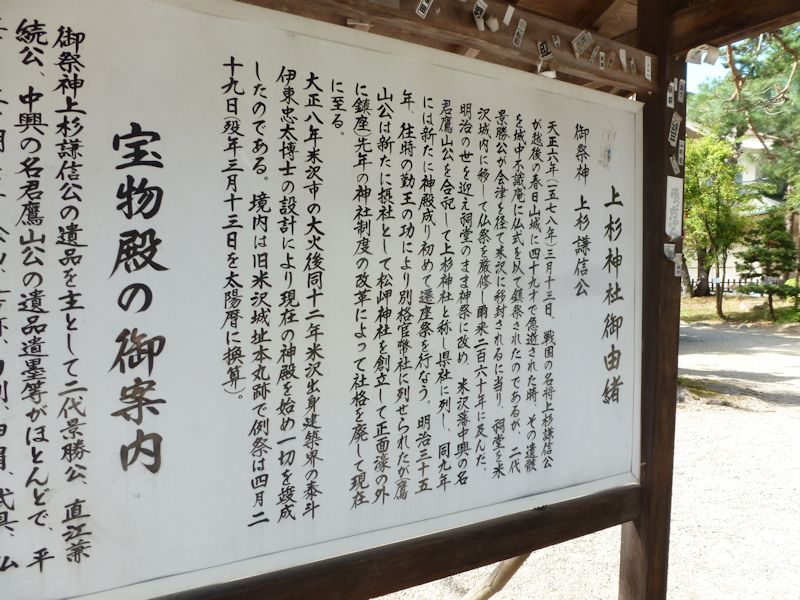 上杉神社御由緒
御祭神 上杉謙信公
天正六年(一五七八年)三月十三日、戦国の名将上杉謙信公
が越後の春日山城に四十九才で急逝された時、その遺骸
を城中不識庵に仏式を以て鎮祭されたのであるが、二代
景勝公が会津を経て米沢に移封されるに当り、祠堂を米
沢城内に移して仏祭を厳修し爾来二百六十年に及んだ。
明治の世を迎え祠堂のまま神祭に改め、米沢藩中興の名
君鷹山公を合祀して上杉神社と称し県社に列し、同九年
には新たに神殿成り初めて遷座祭を行なう。明治三十五
年、往時の勤王の功により別格官幣社に列せられたが鷹
山公は新たに摂社として松岬神社を創立して正面濠の外
に鎮座(先年の神社制度の改革によって社格を廃して現在
に至る。
大正八年米沢市の大火後同十二年米沢出身建築界の泰斗
伊東忠太博士の設計により現在の神殿を始め一切を竣成
したのである。境内は旧米沢城址本丸跡で例祭は四月二
十九日(歿年三月十三日を太陽暦に換算)。
宝物殿の御案内
御祭神上杉謙信公の遺品を主として二代景勝公、直江兼
続公、中興の名君鷹山公の遺品遺墨等がほとんどで、平